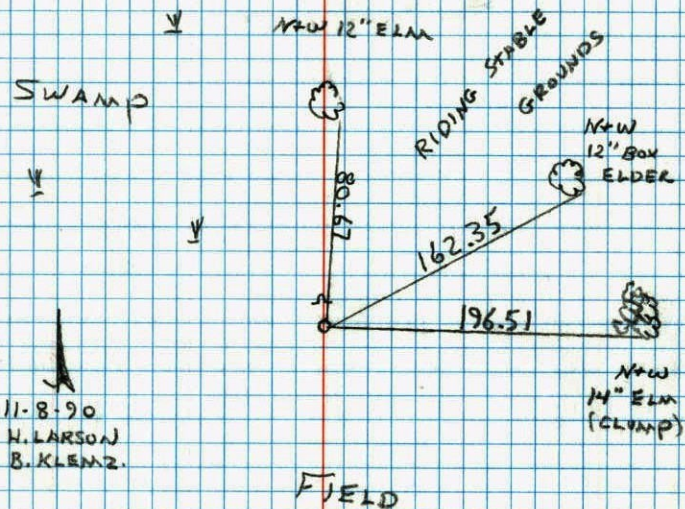 N+W 12" ELM
SWAMP
RIDING STABLE
GROUNDS
N+W
12" BOX
ELDER
80.67
162.35
196.51
N+W
14" ELM
(CLUMP)
11-8-90
H. LARSON
B. KLEMZ.
FIELD